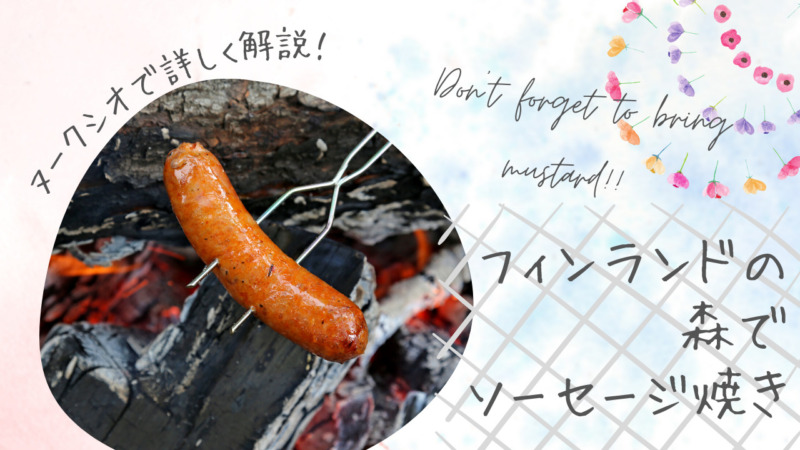 ヌークシオで詳しく解説!
Don't forget to bring
mustard!!
フィンランドの
森で
ソーセージ焼き